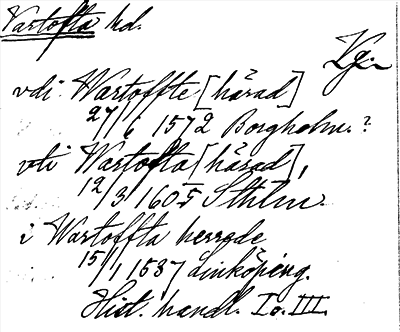 Vartofta hd.
Vg.
vdi Wartoffte [härad]
27/6 1572 Borgholm.?
vti Wartofta [härad],
12/3 1605 Sthlm.
i Wartoffta herrede
15/1 1587 Linköping.
Hist. handl. Io. III.